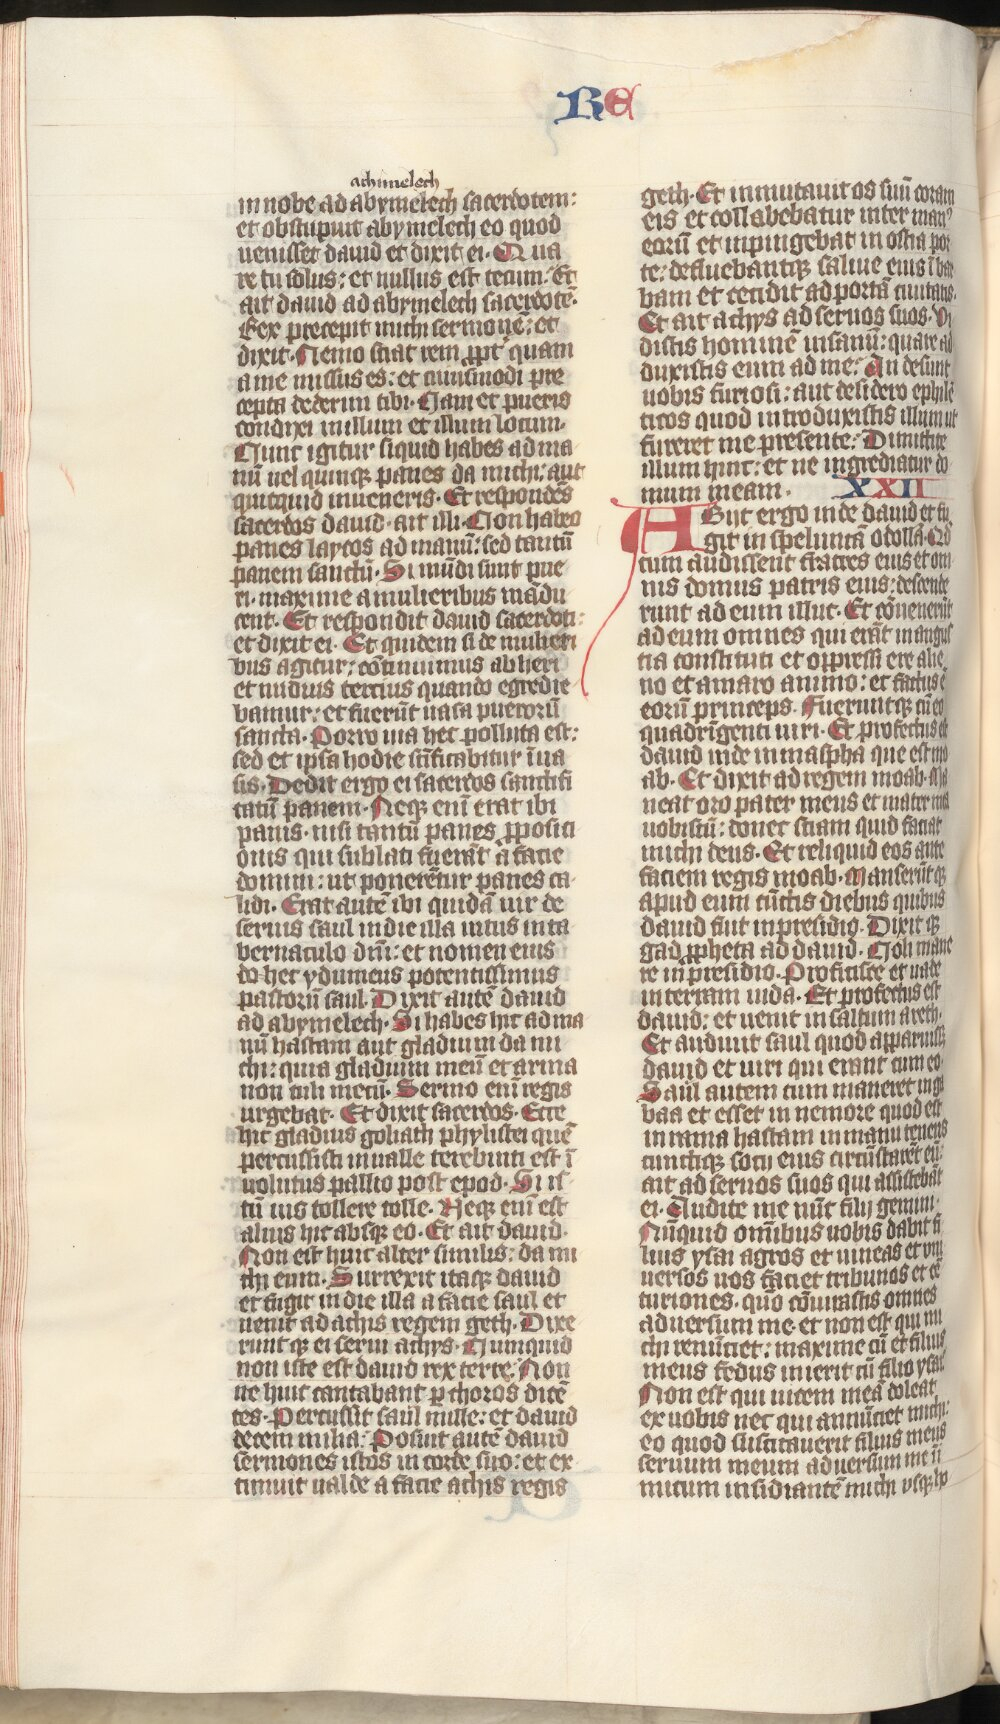 RE
achimelech
in nobe ad abymelech sacerdotem:
et obstupuit abymelech eo quod
uenisset dauid et dixit ei. Qua
re tu solus: et nullus est tecum. Et
ait dauid ad abymelech sacerdotē.
Rex precepit michi sermonē: et
dixit. Nemo sciat rem ꝓpt̄ quam
a me missus es: et cuiusmodi pre
cepta dederim tibi. Nam et pueris
condixi in illum et illum locum.
Nunc igitur siquid habes ad ma
nū uel quinqꝫ panes da michi: aut
quicquid inueneris. Et respondēs
sacerdos dauid. ait illi. Non habeo
panes laycos ad manū: sed tantū
panem sanctū. Si mūdi sunt pue
ri. maxime a mulieribus mādu
cent. Et respondit dauid sacerdoti:
et dixit ei. Et quidem si de mulieri
bus agitur: cōtinuimus ab heri
et nudius tercius quando egredie
bamur: et fuerūt uasa puerorū
sancta. Porro uia hec polluta est:
sed et ipsa hodie sc̄ificabitur ī ua
sis. Dedit ergo ei sacerdos sanctifi
catū panem. Neqꝫ enī erat ibi
panis. nisi tantū panes ꝓpositi
onis qui sublati fuerāt a facie
domini: ut ponerētur panes ca
lidi. Erat autē ibi quidā uir de
seruis saul in die illa intus in ta
bernaculo dn̄i: et nomen eius
do hec ydumeus potentissimus
pastorū saul. Dixit autē dauid
ad abymelech. Si habes hic ad ma
nū hastam aut gladium da mi
chi: quia gladium meū et arma
non tuli mecū. Sermo enī regis
urgebat. Et dixit sacerdos. Ecce
hic gladius goliath phylistei quē
percussisti in ualle terebinti est ī
uolutus pallio post epod. Si is
tū uis tollere tolle. Neqꝫ enī est
alius hic absqꝫ eo. Et ait dauid.
Non est huic alter similis: da mi
chi eum. Surrexit itaqꝫ dauid
et fugit in die illa a facie saul et
uenit ad achis regem geth. Dixe
runt qꝫ ei serui achys. Numquid
non iste est dauid rex terre. Non
ne huic cantabant ꝑ choros dicē
tes. Percussit saul mille: et dauid
decem milia: Posuit autē dauid
sermones istos in corde suo: et ex
timuit ualde a facie achis regis
geth. Et inmutauit os suū coram
eis et collabebatur inter manꝰ
eorū et inpingebat in ostia por
te: defluebantqꝫ saliue eius ī bar
bam et cecidit ad portā ciuitatis.
Et ait achys ad seruos suos. Vi
distis hominē insanū: quare ad
duxistis eum ad me: An desunt
uobis furiosi: aut desidero ephilē
ticos quod introduxistis illum ut
fureret me presente: Dimittite
illum hinc: et ne ingrediatur do
mum meam. XXII
ABijt ergo inde dauid et fu
git in speluncā odolla. Qd̄
cum audissent fratres eius et om
nis domus patris eius: descende
runt ad eum illuc. Et cōuenerūt
ad eum omnes qui erāt in angus
tia constituti et oppressi ere alie
no et amaro animo: et factus ē
eorū princeps. Fueruntqꝫ cū eo
quadringenti uiri. Et profectus est
dauid inde in maspha que est mo
ab. Et dixit ad regem moab. Ma
neat oro pater meus et mater mea
uobiscū: donec sciam quid faciat
michi deus. Et reliquid eos ante
faciem regis moab. Manserūt qꝫ
apud eum cūctis diebus quibus
dauid fuit in presidio. Dixit qꝫ
gad ꝓpheta ad dauid. Noli mane
re in presidio. Proficisce et uade
in terram iuda. Et profectus est
dauid: et uenit in saltum areth.
Et audiuit saul quod apparuisset
dauid et uiri qui erant cum eo.
Saul autem cum maneret in ga
baa et esset in nemore quod est
in rama hastam in manu tenens
cunctiqꝫ socij eius circūstarēt eū:
ait ad seruos suos qui assistebāt
ei. Audite me nūc filij gemini.
Nūquid omībus uobis dabit fi
lius ysai agros et uineas et vni
uersos uos faciet tribunos et cē
turiones. quō cōiurastis omnes
aduersum me. et non est qui mi
chi renūciet: maxime cū et filius
meus fedus inierit cū filio ysai
Non est qui uicem meā doleat
ex uobis nec qui annūciet michi:
eo quod suscitauerit filius meus
seruum meum aduersum me ī
micum insidiantē michi vsqꝫ ho